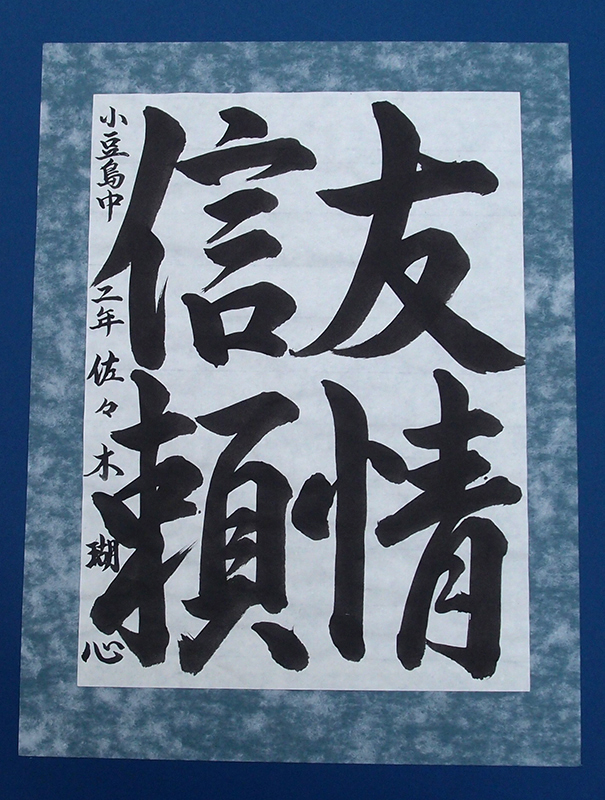 友情
信頼
小豆島中 二年 佐々木 瑚心